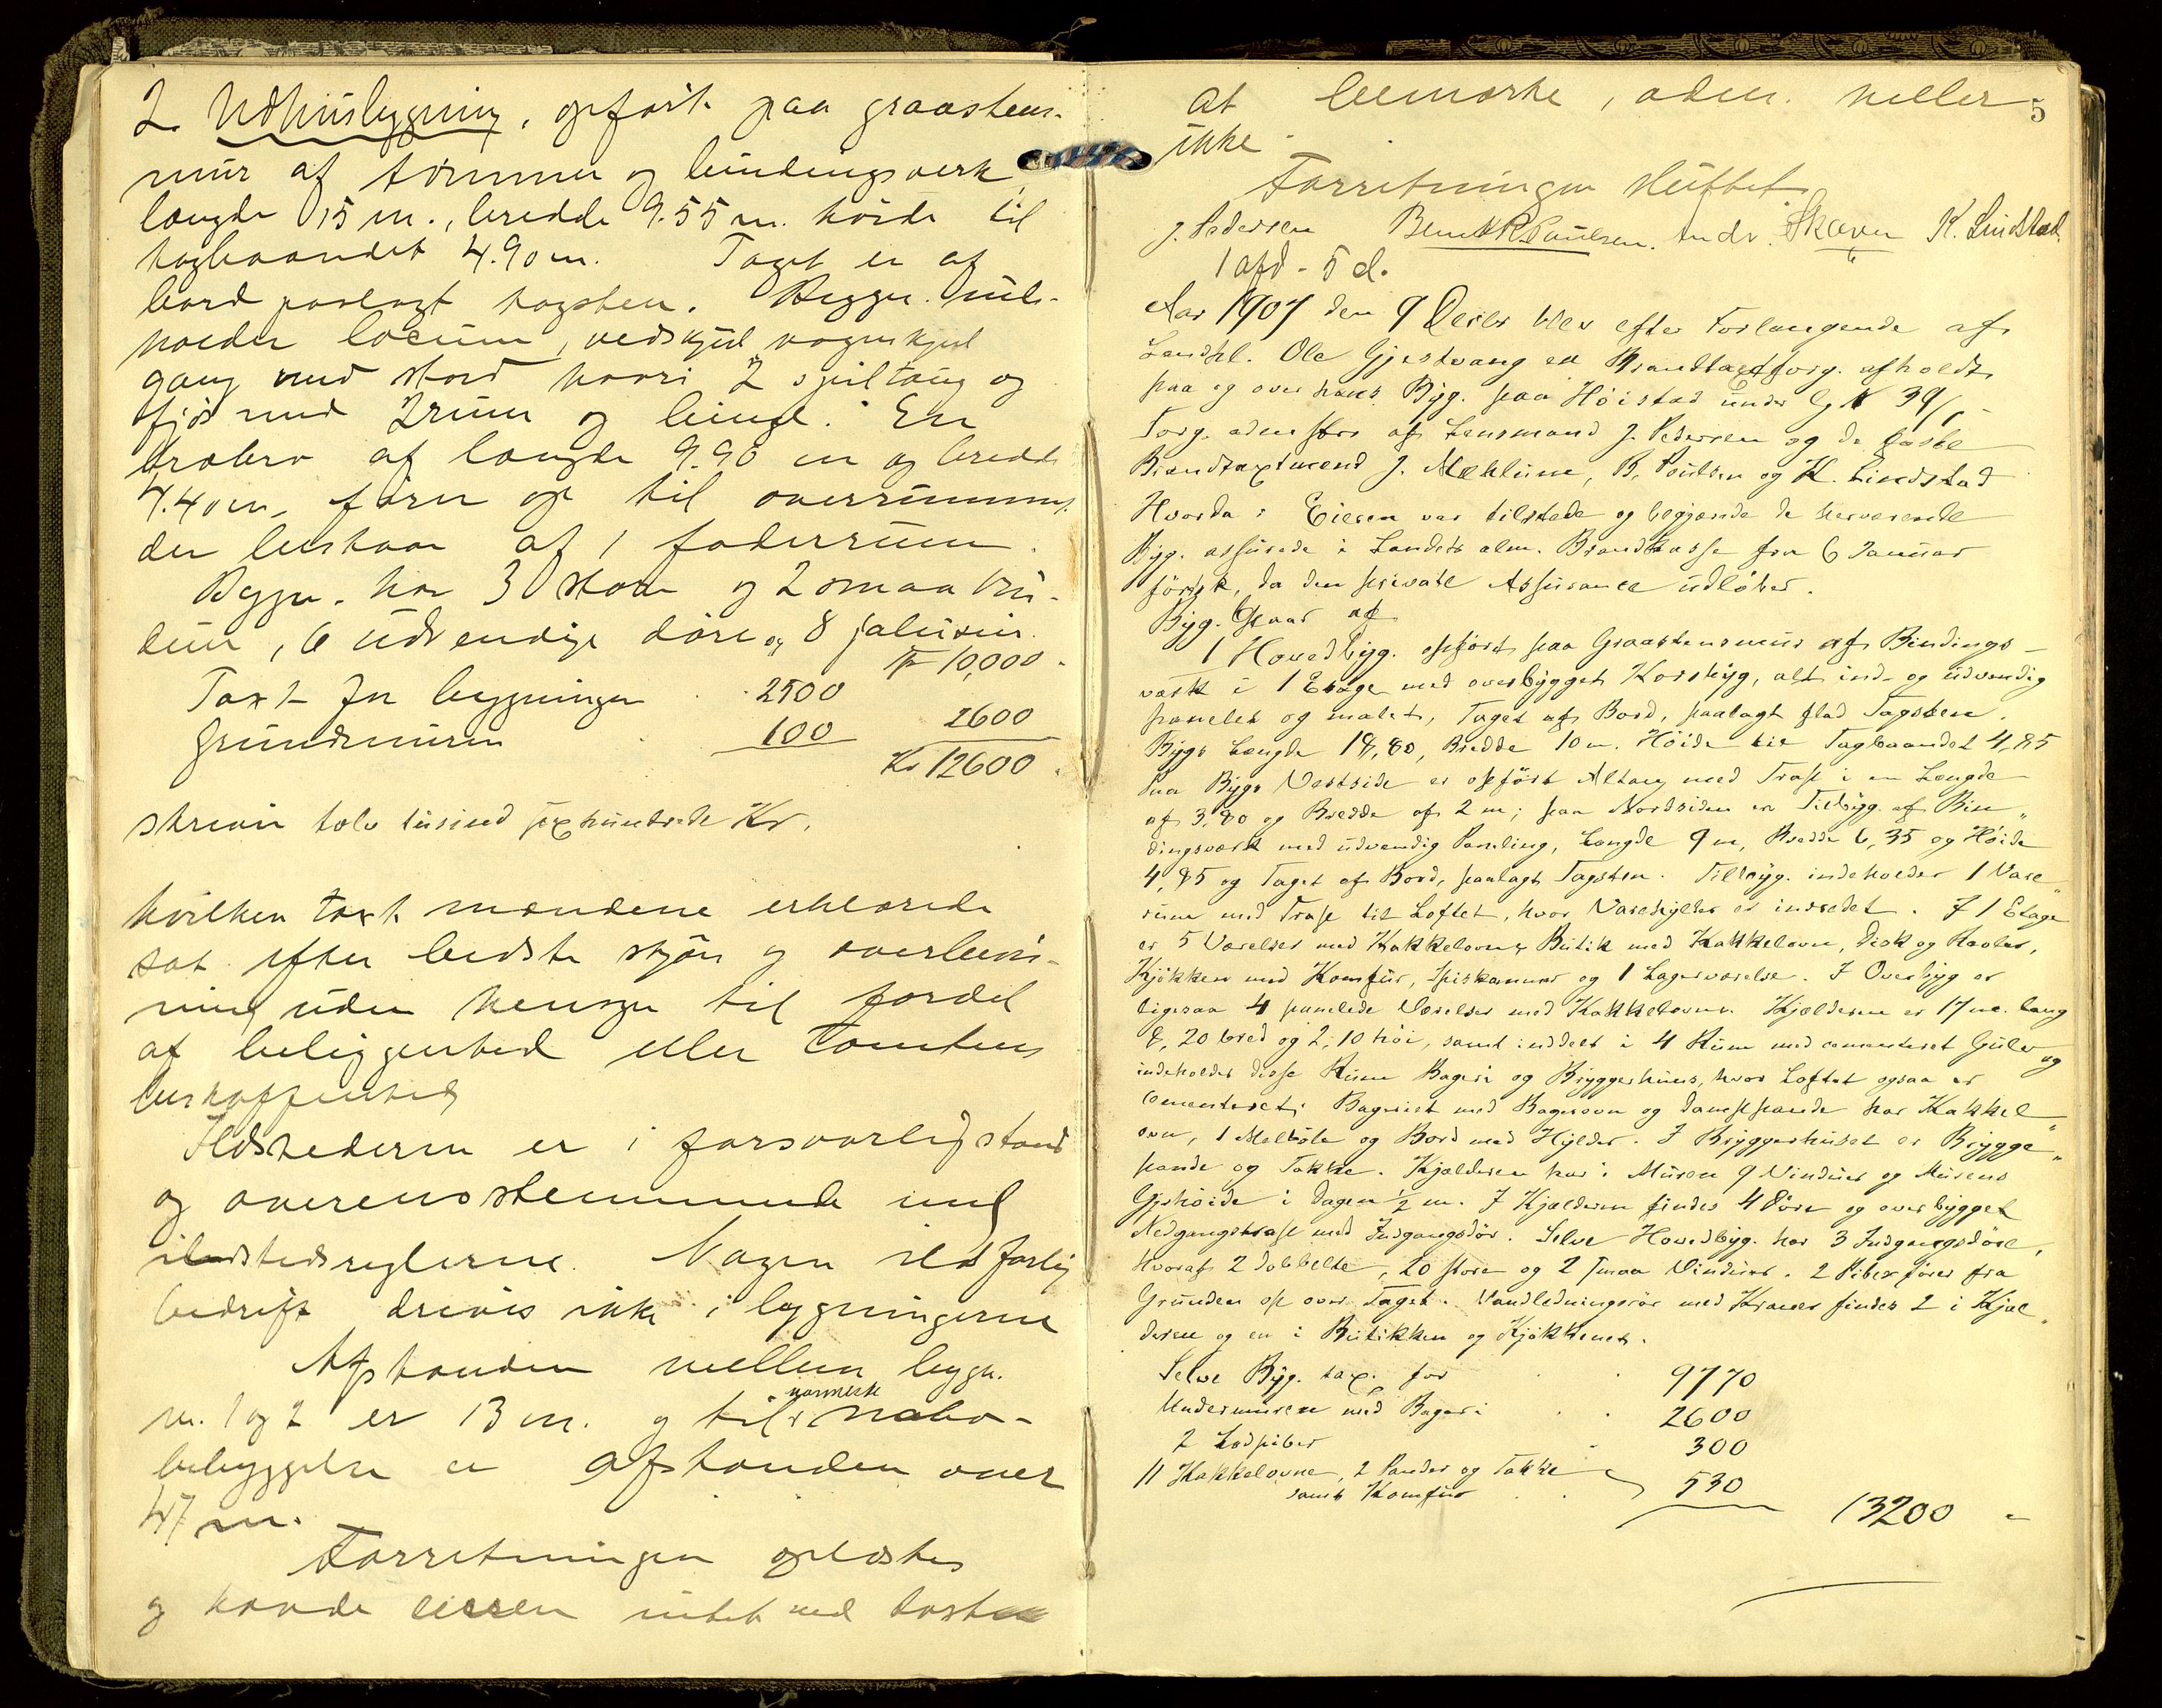 2. Udhusbygning, opført paa graastens-
mur af tømmer og bindingsverk
længde 15 m., bredde 9.55 m. høide til
tagbaandet 4.90 m. Taget er af
bord paalagt tagsten. Byggn. inde-
holder locum, vedskjul, vognskjul
gang med stald hvori 2 spiltaug og
fjøs med 2 rum og binge. En
laabro af længde 9.90 m og bredde
4.40 m, fører op til overrummet
der bestaar af 1 foderrum.
Byggn. har 3 store og 2 smaa vin-
duer, 6 udvendige døre og 8 jalusier.
Tp 10,000.
Taxt for bygningen 2500
Grundmuren 100 2600
Kr 12600.
skriver tolv tusind sexhundrede Kr.
hvilken taxt mændene erklærede
sat efter bedste skjøn og overbevis-
ning uden hensyn til fordel
af beliggenhed eller Tomtens
beskaffenhed
Ildstederne er i forsvarlig stand
og overensstemmende med
ildstedsreglerne. Nogen ildsfarlig
bedrift drives ikke i bygningerne
Afstanden mellem byggn.
nr. 1 og 2 er 13 m. og til nærmeste nabo-
bebyggelse er afstanden over
47 m.
Forretningen oplæstes
og havde eieren intet ved taxten
5
at bemærke, aden. heller
ikke.
Forretningen sluttet.
J. Pedersen Bernt R Paulsen. Andr. Skaven K. Lindstad.
1 afd - 5 d.
Aar 1907 den 9 Decbr blev efter Forlangende af
Landhl. Ole Gjestvang en Brandtaxtforg. afholdt
paa og over hans Byg. paa Høistad under G N 39/1
Forg. adm. af Lensmand J. Pedersen og de faste
Brandtaxtmænd J. Mæhlum, B. Poulsen og K. Lindstad
Hvorda: Eieren var tilstede og begjærede de herværende
Byg. assurede i Landets alm. Brandkasse fra 6 Januar
førstk, da den private Assurance udløber.
Byg. bestaar af
1 Hovedbyg. opført paa Graastensmur af Bindings-
værk i 1 Etage med overbygget Korsbyg, alt ind- og udvendig
panelet og malet, Taget af Bord, paalagt flad Tagsten.
Bygs Længde 18,80, Bredde 10 m. Høide til Tagbaandet 4,85
Paa Bygs Vestside er opført Altan med Trap i en Længde
af 3,80 og Bredde af 2 m; paa Nordsiden en Tilbyg. af Bin„
dingsværk med udvendig Paneling, Længde 9 m, Bredde 6,35 og Høide
4,85 og Taget af Bord, paalagt Tagsten. Tilbyg. indeholder 1 Vare„
rum med Trap til Loftet, hvor Varehylder er indredet. I 1 Etage
er 5 Værelser med Kakkelovn, Butik med Kakkelovn, Disk og Reoler,
Kjøkken med Komfur, Spiskammer og 1 Lagerværelse. I Overbyg er
ligesaa 4 panelede Værelser med Kakkelovne. Kjælderen er 17 m. lang
8,20 bred og 2,10 høi, samt inddelt i 4 Rum med cementeret Gulv og
indeholder disse Rum Bageri og Bryggerhus, hvor Loftet ogsaa er
cementeret; Bageriet med Bagerovn og Damppande har Kakkel„
ovn, 1 Melbøle og Bord med Hylder. I Bryggerhuset er Brygge„
pande og Takke. Kjælderen har i Muren 9 Vinduer og Murens
Gjshøide i Dagen ½ m. I Kjælderen findes 4 Døre og overbygget
Nedgangstrap med Indgangsdør. Selve Hovedbyg. har 3 Indgangsdøre,
hvoraf 2 dobbelte, 20 store og 2 smaa Vinduer. 2 Piber fører fra
Grunden op over Taget. Vandledningsrør med Kraner findes 2 i Kjæl„
deren og en i Butikken og Kjøkkenet.
Selve Byg. tax. for 9770
Undermuren med Bageri 2600
2 Lodpiber 300
11 Kakkelovne, 2 Pander og Takke
samt Komfur 530
13200